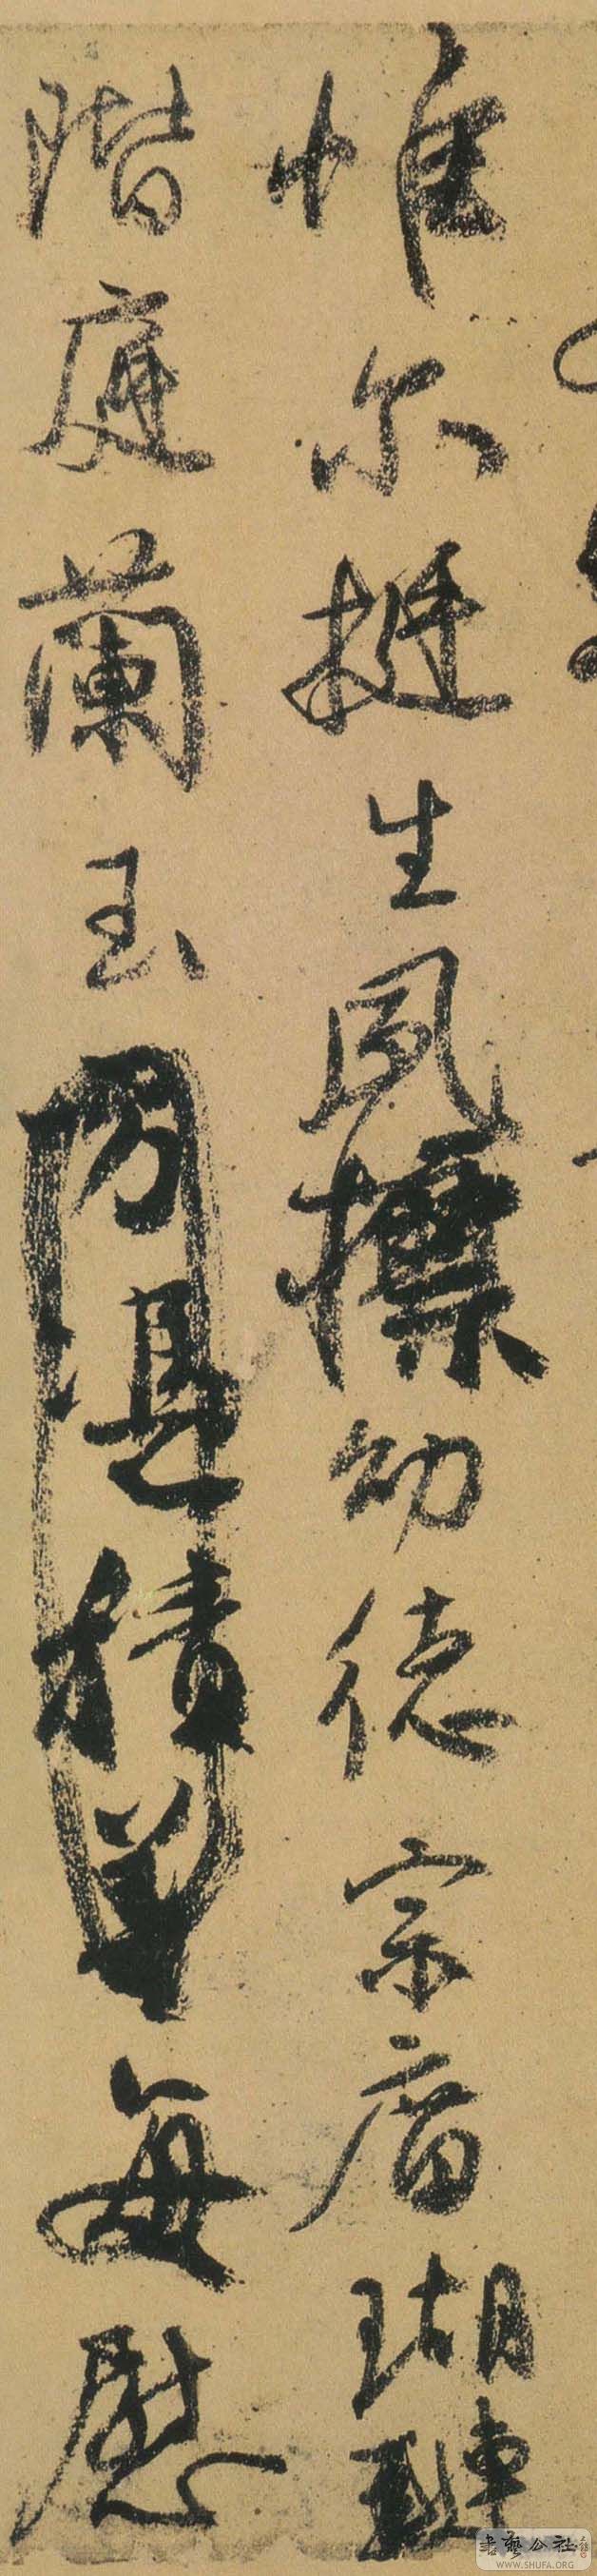 惟尔挺生夙標幼德宗庿瑚璉
階庭蘭玉方憑積善每慰
書藝公社
WWW.SHUFA.ORG